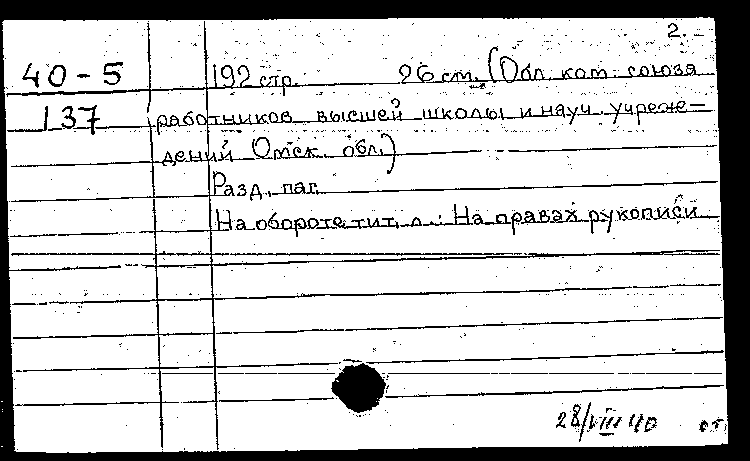 2.
40-5 192 стр. 26 см. (Обл. ком. союза
137 работников высшей школы и науч. учреж-
дений Омск. обл.)
Разд. паг.
На обороте тит. л.: На правах рукописи
28/VIII 40 ст